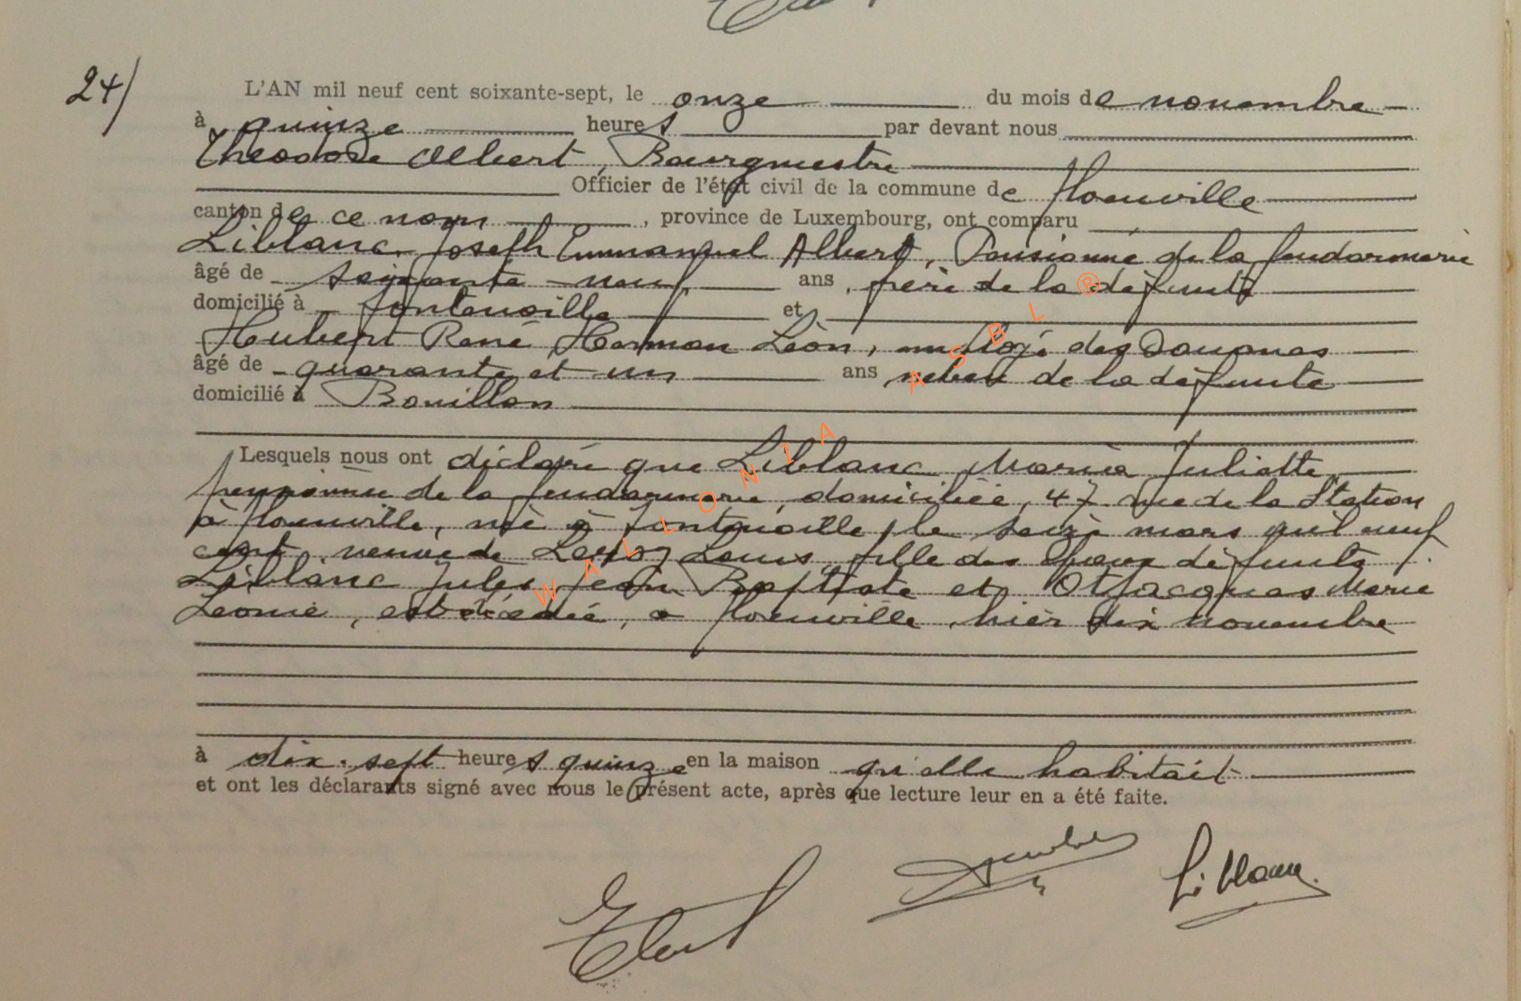 24/
L'AN mil neuf cent soixante-sept, le onze du mois de novembre
à quinze heures par devant nous
Théodore Albert, Bourgmestre
Officier de l'état civil de la commune de Florenville
canton de ce nom, province de Luxembourg, ont comparu
Liblanc Joseph Emmanuel Albert, Pensionné de la gendarmerie
âgé de soixante-neuf ans, frère de la défunte
domicilié à Fontenoille et
Hubert René Herman Léon, employé des Douanes
âgé de quarante et un ans neveu de la défunte
domicilié à Bouillon
Lesquels nous ont déclaré que Liblanc Maria Juliette,
pensionnée de la gendarmerie, domiciliée, 47 rue de la Station
à Florenville, née à Fontenoille, le seize mars mil neuf
cent, veuve de Louis, fille des époux défunts
Liblanc Jules Jean Baptiste et Otjacques Marie
Léonie, est décédée, à Florenville, hier dix novembre
à dix-sept heures quinze en la maison qu'elle habitait
et ont les déclarants signé avec nous le présent acte, après que lecture leur en a été faite.
Liblanc
WALLONIA ASBL ®